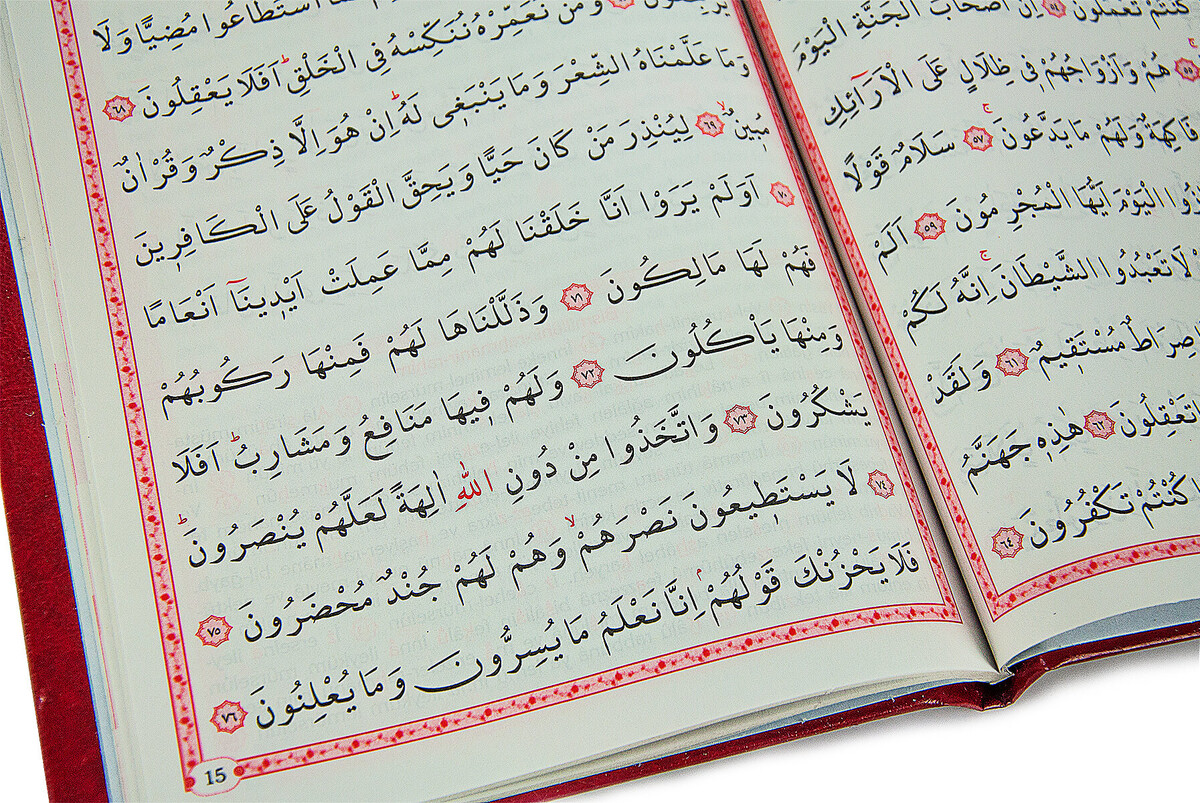 كُنْتُمْ تَعْمَلُونَ ﴿٥٤﴾ اِنَّ اَصْحَابَ الْجَنَّةِ الْيَوْمَ
﴿٥٥﴾ هُمْ وَاَزْوَاجُهُمْ فٖي ظِلَالٍ عَلَى الْاَرَٓائِكِ
فَاكِهَةٌ وَلَهُمْ مَا يَدَّعُونَۚ ﴿٥٧﴾ سَلَامٌ قَوْلًا
الْيَوْمَ اَيُّهَا الْمُجْرِمُونَ ﴿٥٩﴾ اَلَمْ
لَا تَعْبُدُوا الشَّيْطَانَۚ اِنَّهُ لَكُمْ
صِرَاطٌ مُسْتَقٖيمٌ ﴿٦١﴾ وَلَقَدْ
تَعْقِلُونَ ﴿٦٢﴾ هٰذِهٖ جَهَنَّمُ
كُنْتُمْ تَكْفُرُونَ ﴿٦٤﴾
اسْتَطَاعُوا مُضِيًّا وَلَا
يَرْجِعُونَ ﴿٦٧﴾ وَمَنْ نُعَمِّرْهُ نُنَكِّسْهُ فِي الْخَلْقِؕ اَفَلَا يَعْقِلُونَ ﴿٦٨﴾
وَمَا عَلَّمْنَاهُ الشِّعْرَ وَمَا يَنْبَغٖي لَهُؕ اِنْ هُوَ اِلَّا ذِكْرٌ وَقُرْاٰنٌ
مُبٖينٌۙ ﴿٦٩﴾ لِيُنْذِرَ مَنْ كَانَ حَيًّا وَيَحِقَّ الْقَوْلُ عَلَى الْكَافِرٖينَ
﴿٧٠﴾ اَوَلَمْ يَرَوْا اَنَّا خَلَقْنَا لَهُمْ مِمَّا عَمِلَتْ اَيْدٖينَٓا اَنْعَامًا
فَهُمْ لَهَا مَالِكُونَ ﴿٧١﴾ وَذَلَّلْنَاهَا لَهُمْ فَمِنْهَا رَكُوبُهُمْ
وَمِنْهَا يَأْكُلُونَ ﴿٧٢﴾ وَلَهُمْ فٖيهَا مَنَافِعُ وَمَشَارِبُؕ اَفَلَا
يَشْكُرُونَ ﴿٧٣﴾ وَاتَّخَذُوا مِنْ دُونِ اللّٰهِ اٰلِهَةً لَعَلَّهُمْ يُنْصَرُونَؕ
﴿٧٤﴾ لَا يَسْتَطٖيعُونَ نَصْرَهُمْۙ وَهُمْ لَهُمْ جُنْدٌ مُحْضَرُونَ ﴿٧٥﴾
فَلَا يَحْزُنْكَ قَوْلُهُمْۘ اِنَّا نَعْلَمُ مَا يُسِرُّونَ وَمَا يُعْلِنُونَ ﴿٧٦﴾
15